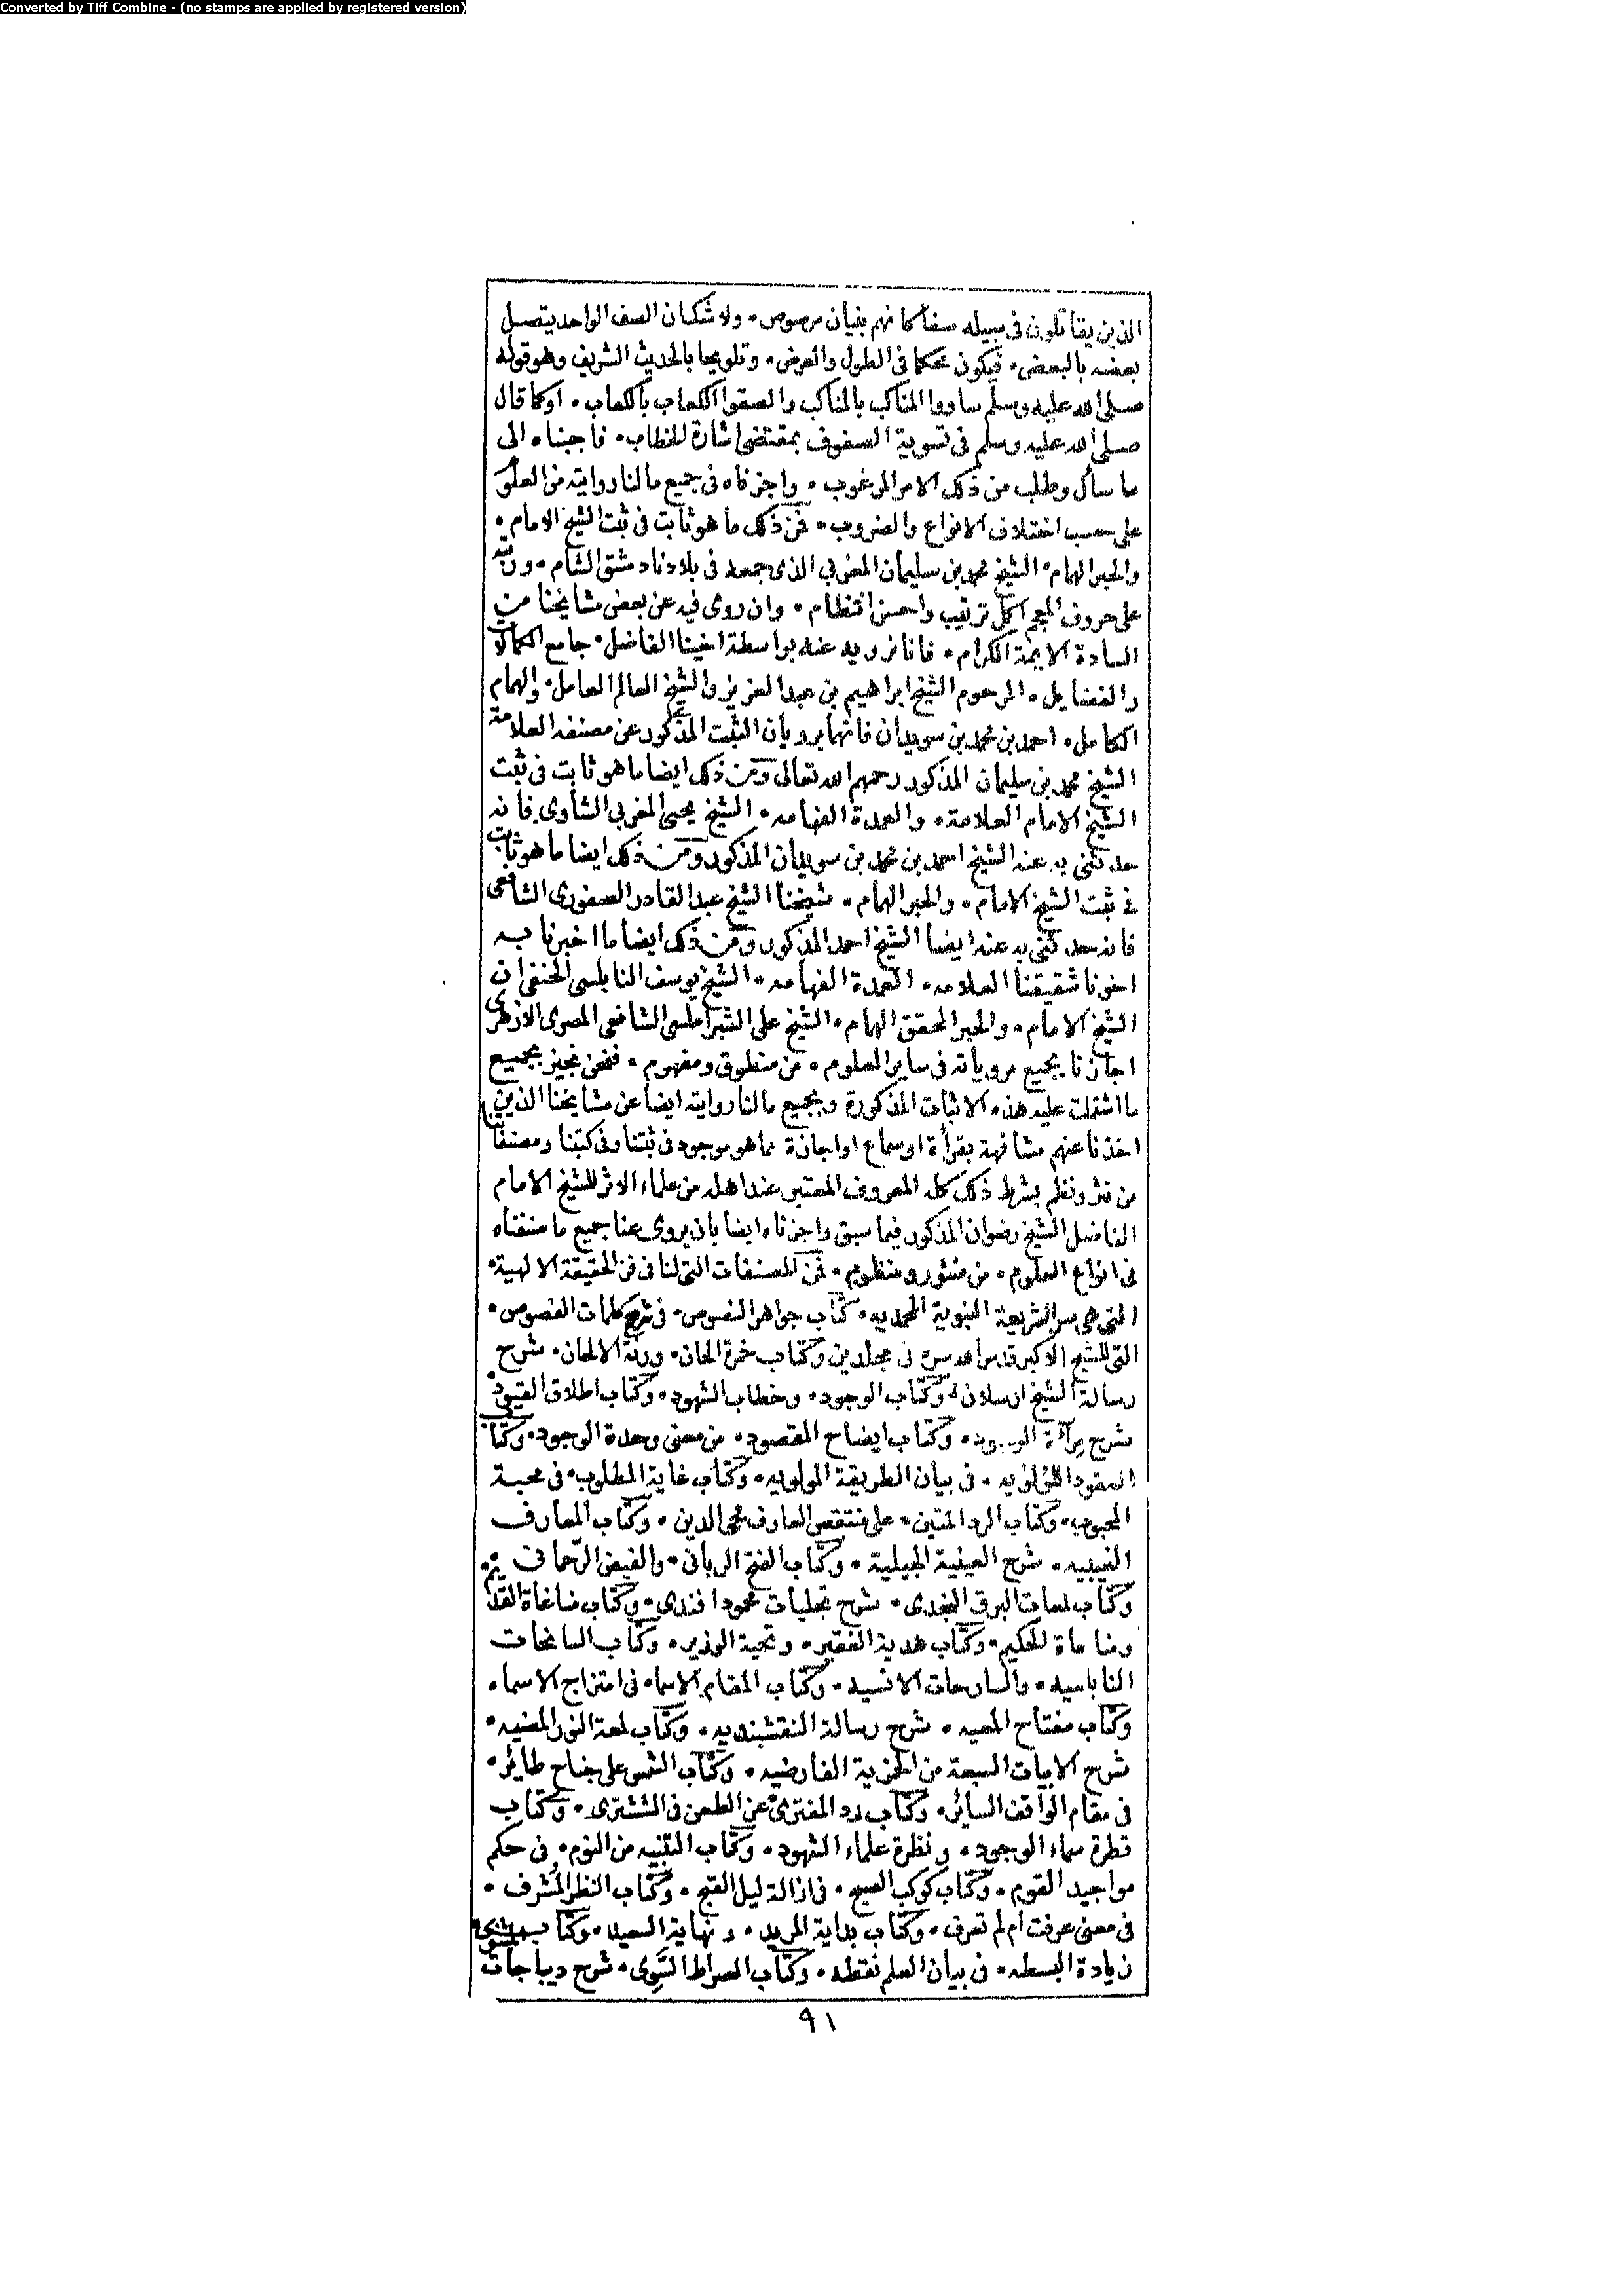 Converted by Tiff Combine - (no stamps are applied by registered version)
الذين يقاتلون في سبيله صفا كانهم بنيان مرصوص ۰ ولا شك ان الصف الواحد يتصل
بعضه بالبعض ۰ فيكون محكما في الطول والعرض ۰ وتلويحا بالحديث الشريف وهو قوله
صلى الله عليه وسلم ساووا المناكب بالمناكب والصقوا الكعاب بالكعاب ۰ او كما قال
صلى الله عليه وسلم في تسوية الصفوف بمقتضى اشارة الخطاب ۰ فاجبناه الى
ما سأل وطلب من ذلك الامر المرغوب ۰ واجزناه في جميع ما لنا روايته من العلو
على حسب اختلاف الانواع والضروب ۰ فمن ذلك ما هو ثابت في ثبت الشيخ الامام ۰
والحبر الهمام ۰ الشيخ محمد بن سليمان المغربي الذي جمعه في بلادنا دمشق الشام ۰ ورتبه
على حروف المعجم اكمل ترتيب واحسن انتظام ۰ وان روى فيه عن بعض مشايخنا من
السادة الايمة الكرام ۰ فانا نرويه عنه بواسطة اخينا الفاضل ۰ جامع الكمالا
والفضايل ۰ المرحوم الشيخ ابراهيم بن عبد العزيز والشيخ العالم العامل ۰ والهمام
الكامل ۰ احمد بن محمد بن سويدان فانهما يرويان الثبت المذكور عن مصنفه العلامة
الشيخ محمد بن سليمان المذكور رحمهم الله تعالى ومن ذلك ايضا ما هو ثابت في ثبت
الشيخ الامام العلامة ۰ والعمدة الفهامه ۰ الشيخ يحيى المغربي الشاوي فانه
حدثني به عنه الشيخ احمد بن محمد بن سويدان المذكور ومن ذلك ايضا ما هو ثابت
في ثبت الشيخ الامام ۰ والحبر الهمام ۰ شيخنا الشيخ عبد القادر الصفوري الشافعي
فانه حدثني به عنه ايضا الشيخ احمد المذكور ومن ذلك ايضا ما اخبرنا به
اخونا شقيقنا العلامه ۰ العمدة الفهامه ۰ الشيخ يوسف النابلسي الحنفي ان
الشيخ الامام ۰ والحبر المحقق الهمام ۰ الشيخ علي الشبراملسي الشافعي المصري الازهري
اجازنا بجميع مروياته في ساير العلوم ۰ من منطوق ومفهوم ۰ فنحن نجيز بجميع
ما اشتملت عليه هذه الاثبات المذكورة وبجميع ما لنا روايته ايضا عن مشايخنا الذين
اخذنا عنهم مشافهة بقرأة او سماع او اجازة مما هو موجود في ثبتنا وفي كتبنا ومصنفاتنا
من نثر ونظم بشرط ذلك كله المعروف المعتبر عند اهله من علماء الاثر للشيخ الامام
الفاضل الشيخ رضوان المذكور فيما سبق واجزناه ايضا بان يروي عنا جميع ما صنفناه
في انواع العلوم ۰ من منثور ومنظوم ۰ فمن المصنفات التي لنا في فن الحقيقة الالهية ۰
التي هي سر الشريعة النبوية المحمديه ۰ كتاب جواهر النصوص ۰ في شرح كلمات الفصوص ۰
التي للشيخ الاكبر قدس الله سره في مجلدين وكتاب خمرة الحان ۰ ورنة الالحان ۰ شرح
رسالة الشيخ ارسلان ۰ وكتاب الوجود ۰ وخطاب الشهود ۰ وكتاب اطلاق القيود ۰
شرح مرآءة الوجود ۰ وكتاب ايضاح المقصود ۰ من معنى وحدة الوجود ۰ وكتاب
العقود اللؤلؤيه ۰ في بيان الطريقة المولويه ۰ وكتاب غاية المطلوب ۰ في محبة
المحبوب ۰ وكتاب الرد المتين ۰ على منتقص العارف محيي الدين ۰ وكتاب المعارف
الغيبيه ۰ شرح العينية الجيلية ۰ وكتاب الفتح الرباني ۰ والفيض الرحماني ۰
وكتاب لمعات البرق النجدي ۰ شرح تجليات محمود افندي ۰ وكتاب مناغاة القديم
ومناجاة الحكيم ۰ وكتاب هدية الفقير ۰ وتحية الوزير ۰ وكتاب السانحات
النابلسيه ۰ والسارحات الانسيه ۰ وكتاب المقام الاسما ۰ في امتزاج الاسماء
وكتاب مفتاح المعيه ۰ شرح رسالة النقشبنديه ۰ وكتاب لمعة النور المضيه ۰
شرح الابيات السبعة من الخمرية الفارضيه ۰ وكتاب الشمس على جناح طائر ۰
في مقام الواقف السائر ۰ وكتاب رد المفتري ۰ عن الطعن في الششتري ۰ وكتاب
قطرة سماء الوجود ۰ ونظرة علماء الشهود ۰ وكتاب التنبيه من النوم ۰ في حكم
مواجيد القوم ۰ وكتاب كوكب الصبح ۰ في ازالة ليل القبح ۰ وكتاب النظر المشرف ۰
في معنى عرفت ام لم تعرف ۰ وكتاب بداية المريد ۰ ونهاية السعيد ۰ وكتاب
زيادة البسطه ۰ في بيان العلم نقطه ۰ وكتاب الصراط السوي ۰ شرح ديباجات المثنوي
٩١